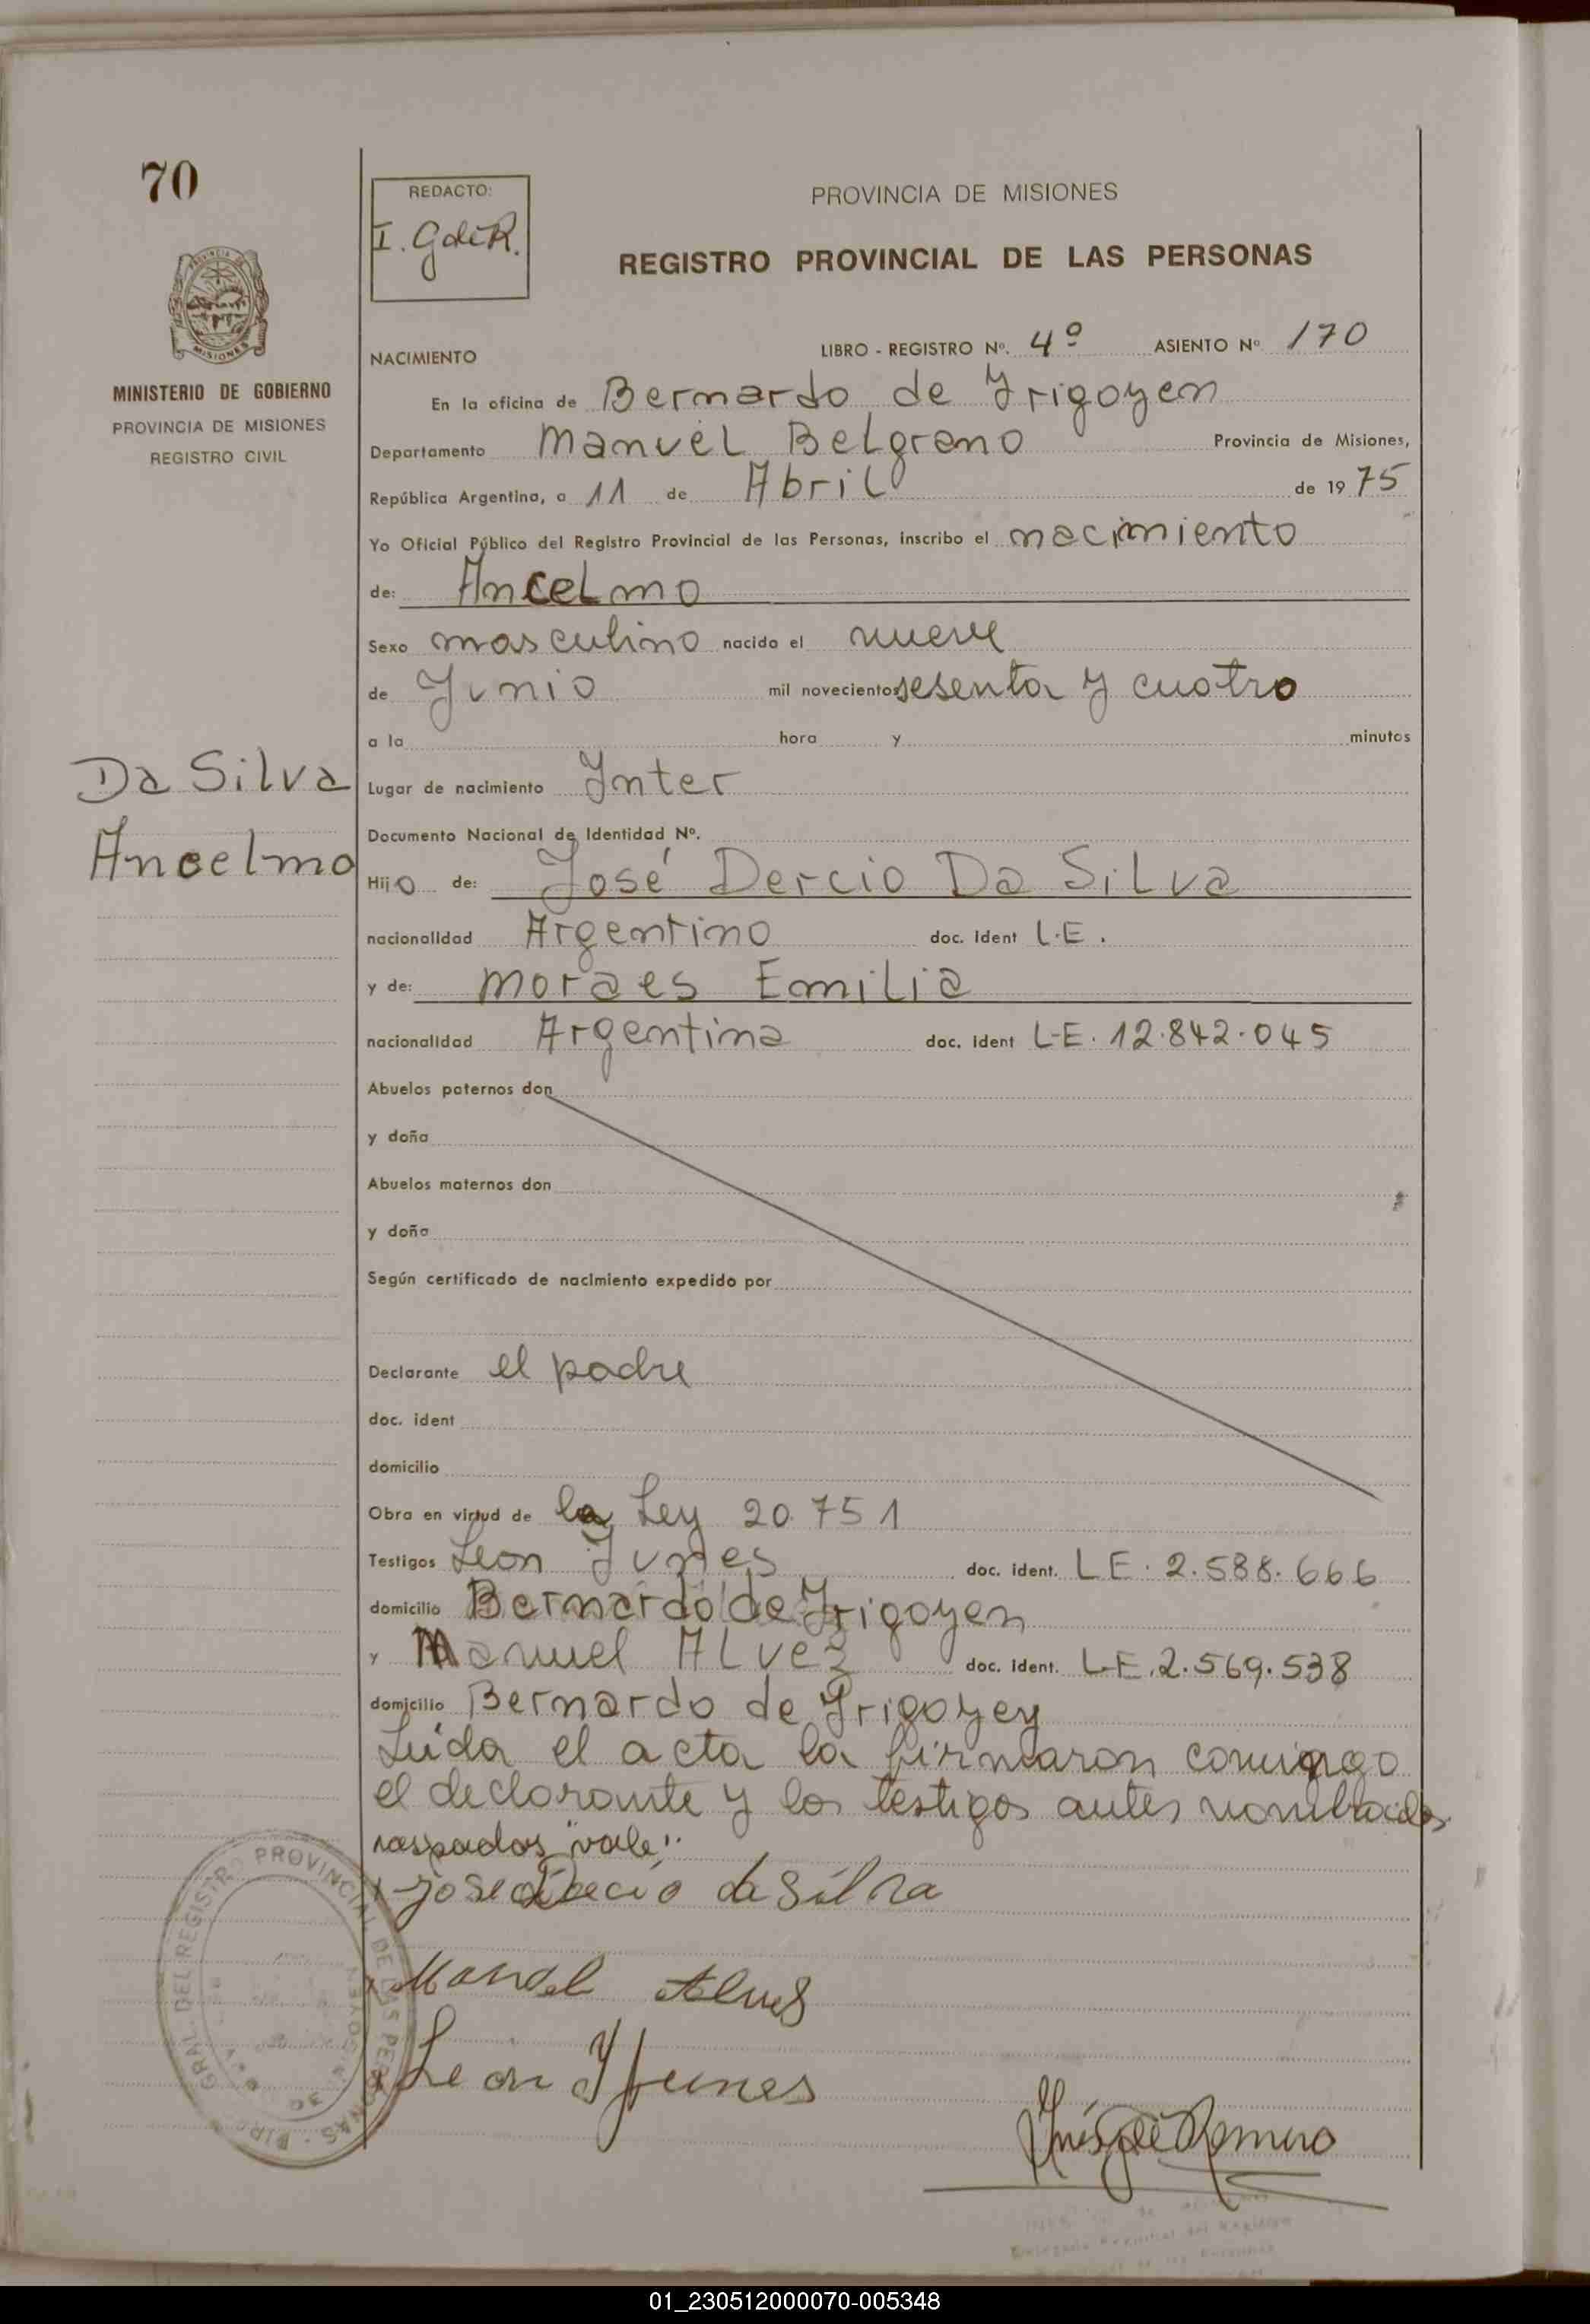 70
REDACTO:
I. GdeR.
PROVINCIA DE MISIONES
REGISTRO PROVINCIAL DE LAS PERSONAS
MISIONES
MINISTERIO DE GOBIERNO
PROVINCIA DE MISIONES
REGISTRO CIVIL
NACIMIENTO LIBRO - REGISTRO Nº. 4º ASIENTO Nº 170
En la oficina de Bernardo de Yrigoyen
Departamento Manuel Belgrano Provincia de Misiones,
República Argentina, a 11 de Abril de 1975
Yo Oficial Público del Registro Provincial de las Personas, inscribo el nacimiento
de: Ancelmo
Sexo masculino nacido el nueve
de Junio mil novecientos sesenta y cuatro
a la hora y minutos
Da Silva
Ancelmo
Lugar de nacimiento Inter
Documento Nacional de Identidad Nº.
Hijo de: José Dercio Da Silva
nacionalidad Argentino doc. ident L.E.
y de: Moraes Emilia
nacionalidad Argentina doc. ident L.E. 12.842.045
Abuelos paternos don
y doña
Abuelos maternos don
y doña
Según certificado de nacimiento expedido por
Declarante el padre
doc. ident
domicilio
Obra en virtud de la Ley 20.751
Testigos Leon Yunes doc. ident. L E. 2.588.666
domicilio Bernardo de Yrigoyen
y Manuel Alvez doc. ident. L.E. 2.569.538
domicilio Bernardo de Yrigoyey
Leida el acta la firmaron conmigo
el declarante y los testigos antes nombrados
raspados "vale".
jose Decio da Silva
Manoel Alves
Leon Yunes
Inés G de Romero
DIREC. GRAL. DEL REGISTRO PROVINCIAL DE LAS PERSONAS
01_230512000070-005348